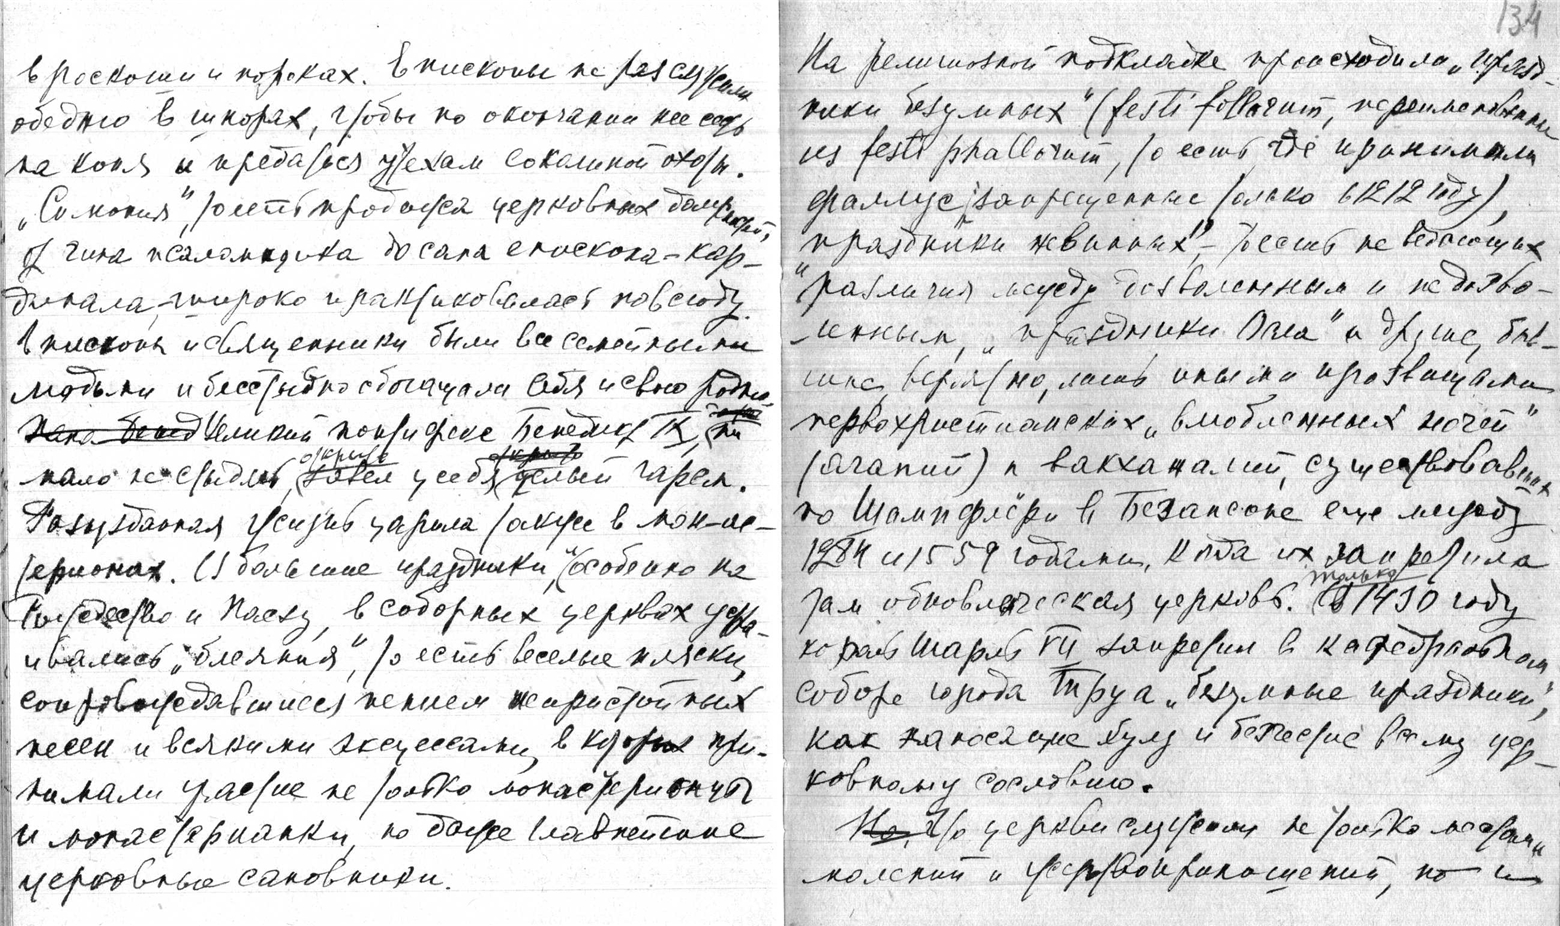 в роскоши и пороках. Епископы не раз служили
обедню в шпорах, чтобы по окончании ее сесть
на коня и предаться утехам соколиной охоты.
„Симония", то есть продажа церковных должностей,
от чина псаломщика до сана епископа-кар-
динала, широко практиковалась повсюду.
Епископы и священники были все семейными
людьми и бесстыдно обогащали себя и свою родню.
Великий понтифекс Бенедикт IX, ни
мало не стыдясь, открыл у себя целый гарем.
Разнузданная жизнь царила также в мона-
стерионах. В большие праздники, (особенно на
Рождество и Пасху, в соборных церквах устра-
ивались „блеяния", то есть веселые пляски,
сопровождавшиеся пением непристойных
песен и всякими эксцессами, в которых при-
нимали участие не только монастерионцы
и монастерианки, но даже главнейшие
церковные сановники.
134
На религиозной подкладке происходили „празд-
ники безумных" (festi follorum, переименованные
из festi phallorum, то есть где принимали
фаллус, запрещенные только в 1212 году),
„праздники невинных", — то есть не ведающих
различия между дозволенным и недозво-
ленным, „праздники Осла" и другие, быв-
шие, вероятно, лишь иными прозвищами
первохристианских „влюбленных ночей"
(агапий) и вакханалий, существовавших
по Шампфлёри в Безансоне еще между
1284 и 1559 годами, когда их запретила
там обновленческая церковь. Только в 1430 году
король Шарль VII запретил в кафедральном
соборе города Труа „безумные праздники",
как наносящие хулу и бесчестие всему цер-
ковному сословию.
Но, что церкви служили не только местами
молений и жертвоприношений, но и